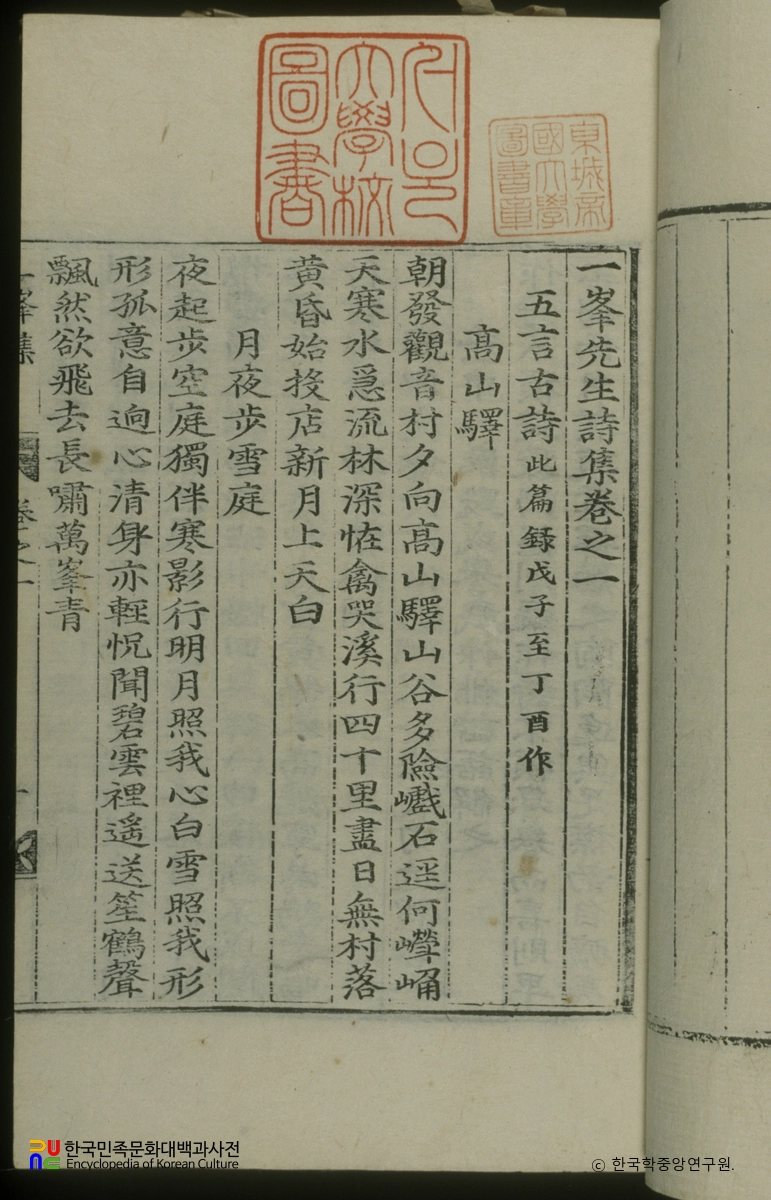 서울大學校圖書
京城帝國大學圖書章
一峯先生詩集卷之一
五言古詩 此篇錄戊子至丁酉作
高山驛
朝發觀音村夕向高山驛山谷多險巇石逕何
天寒水急流林深恠禽哭溪行四十里盡日無村落
黃昏始投店新月上天白
月夜步雪庭
夜起步空庭獨伴寒影行明月照我心白雪照我形
形孤意自逈心清身亦輕怳聞碧雲裡遙送笙鶴聲
飄然欲飛去長嘯萬峯青
一峯集 卷之一 一
한국민족문화대백과사전
Encyclopedia of Korean Culture
© 한국학중앙연구원.